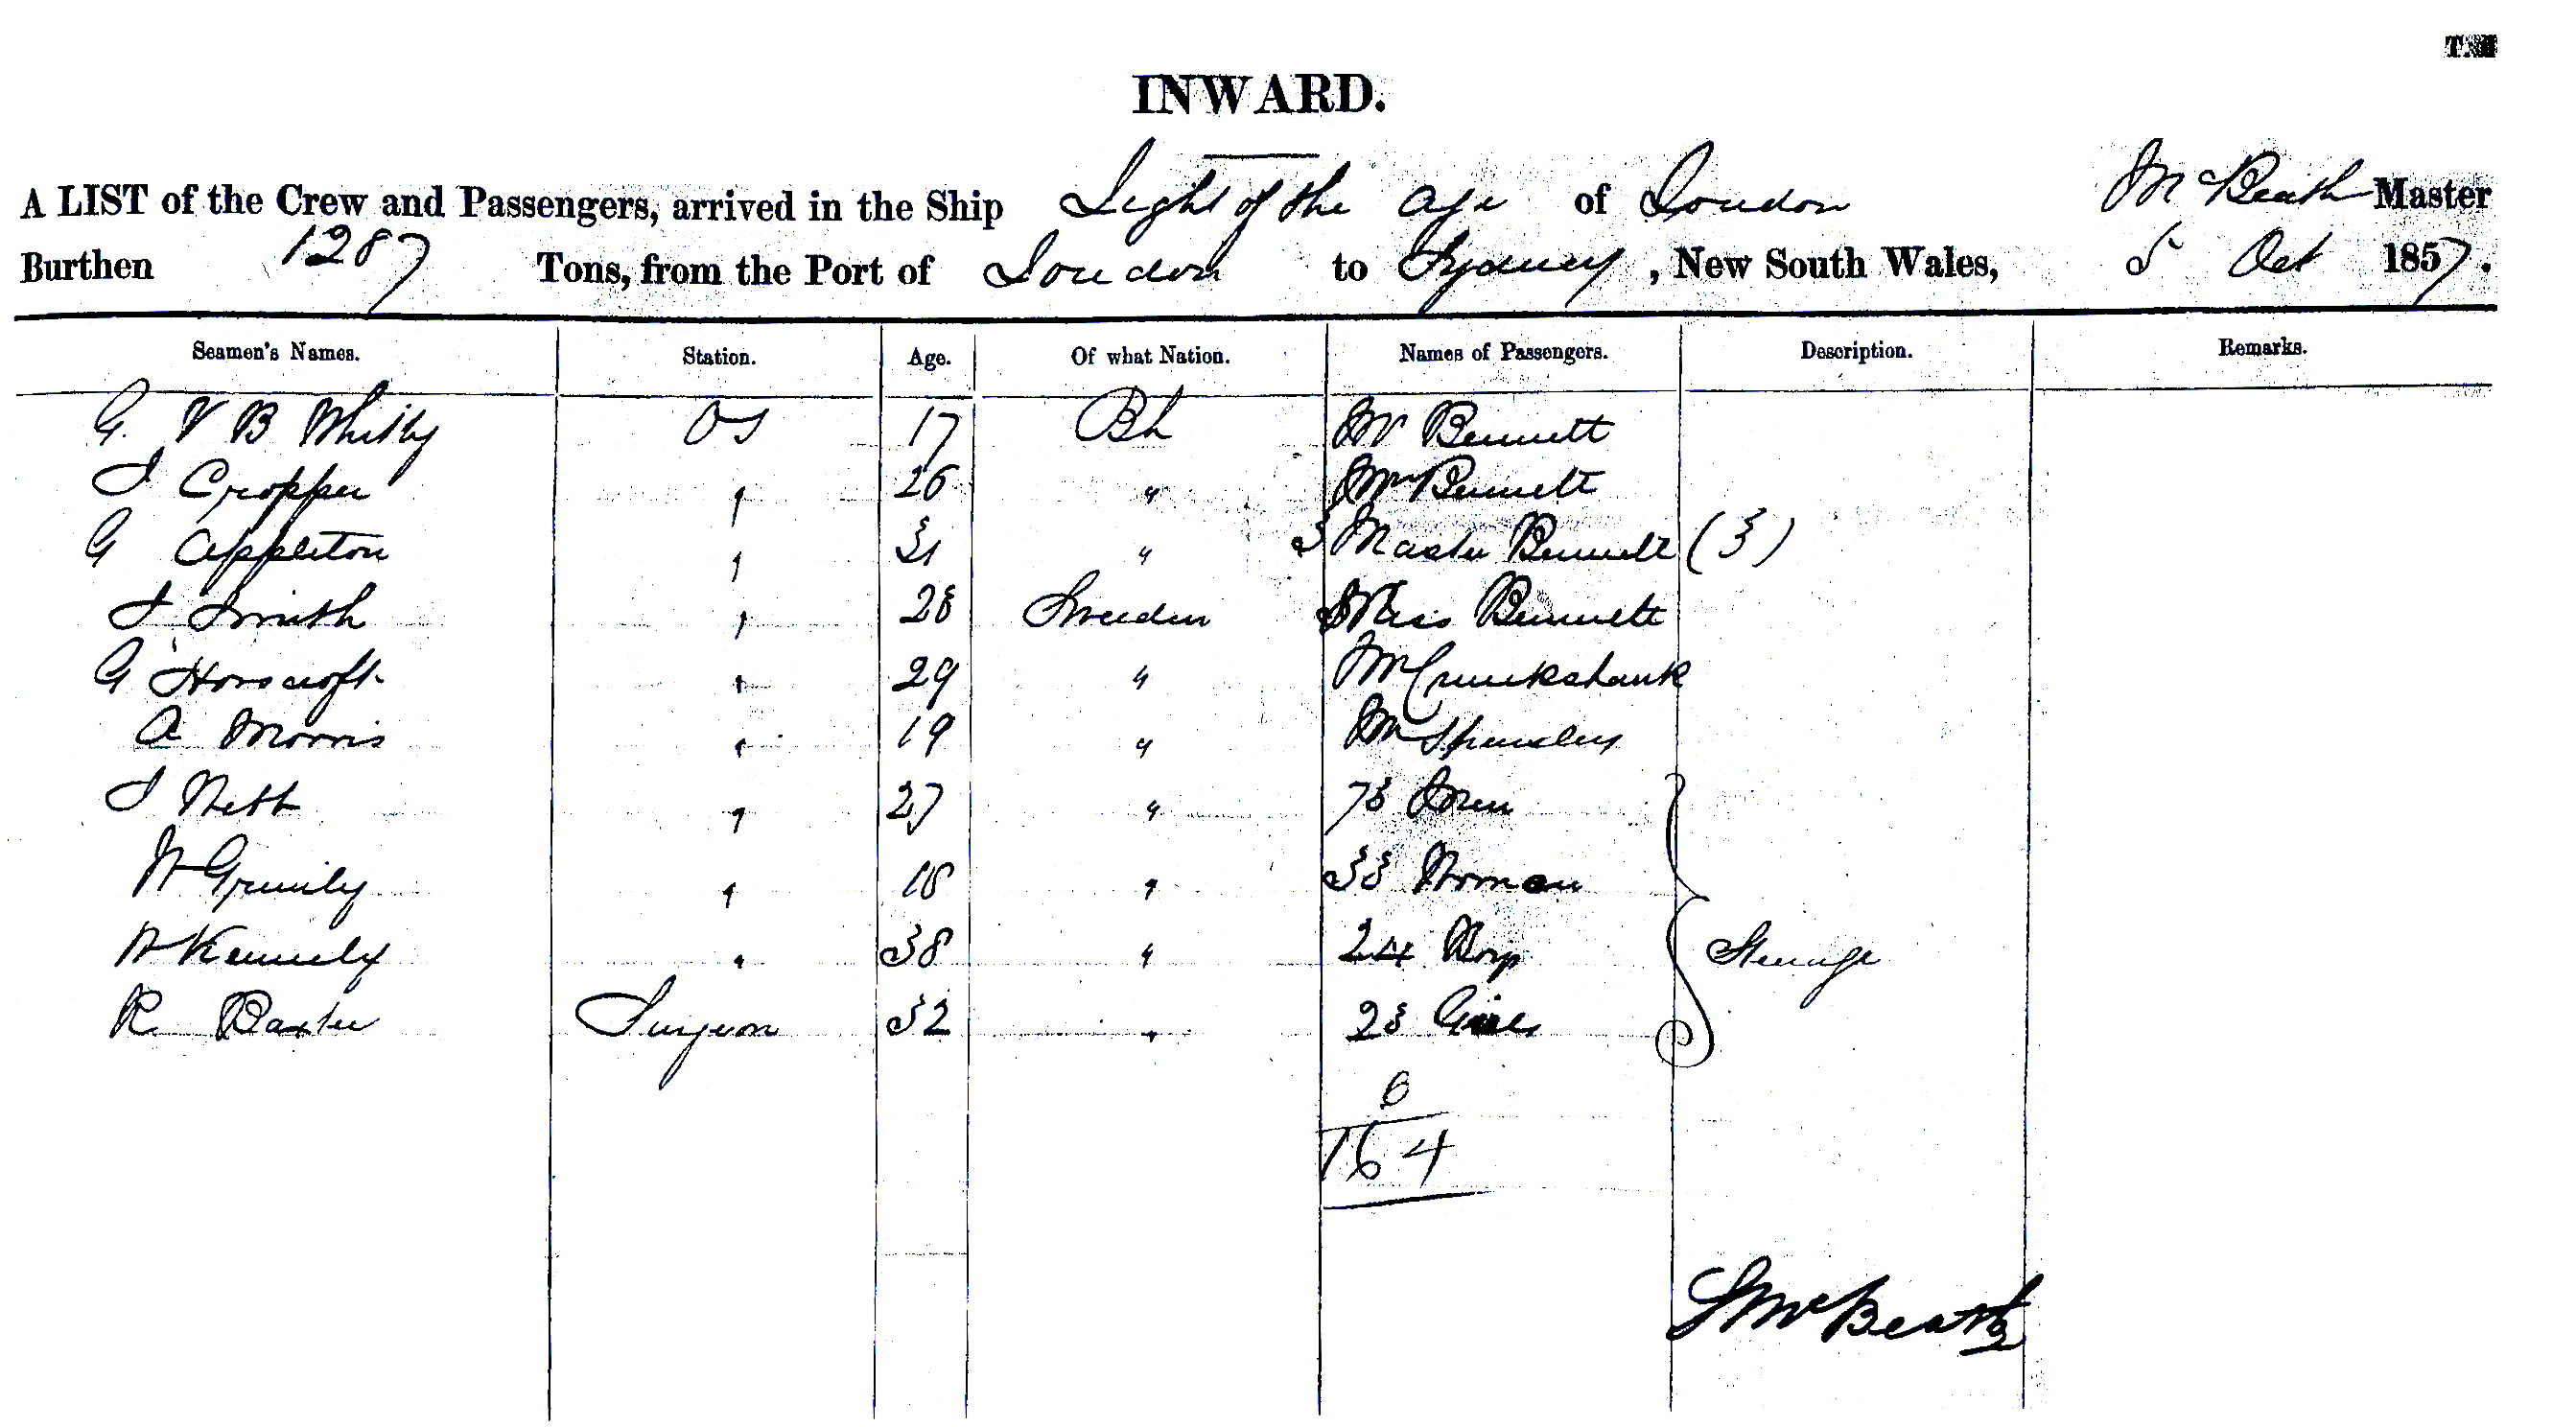 INWARD.
A LIST of the Crew and Passengers, arrived in the Ship Light of the Age of London McBeath Master
Burthen 1287 Tons, from the Port of London to Sydney, New South Wales, 5 Oct 1857.
Seamen's Names. Station. Age. Of what Nation. Names of Passengers. Description. Remarks.
G. V B Whitby OS 17 Bh Mr Bennett
J Cropper " 26 " Mrs Bennett
G Appleton " 31 " 3 Master Bennett (3)
J Smith " 28 Sweden Miss Bennett
G Horscroft " 29 " Mr Cruickshank
A Morris " 19 " Mr Spensley
J Webb " 27 " 78 Men
W " 18 " 33 Women
W Kennedy " 38 " 24 Boys Steerage
R Baxter Surgeon 32 " 23 Girls
6
164
McBeath